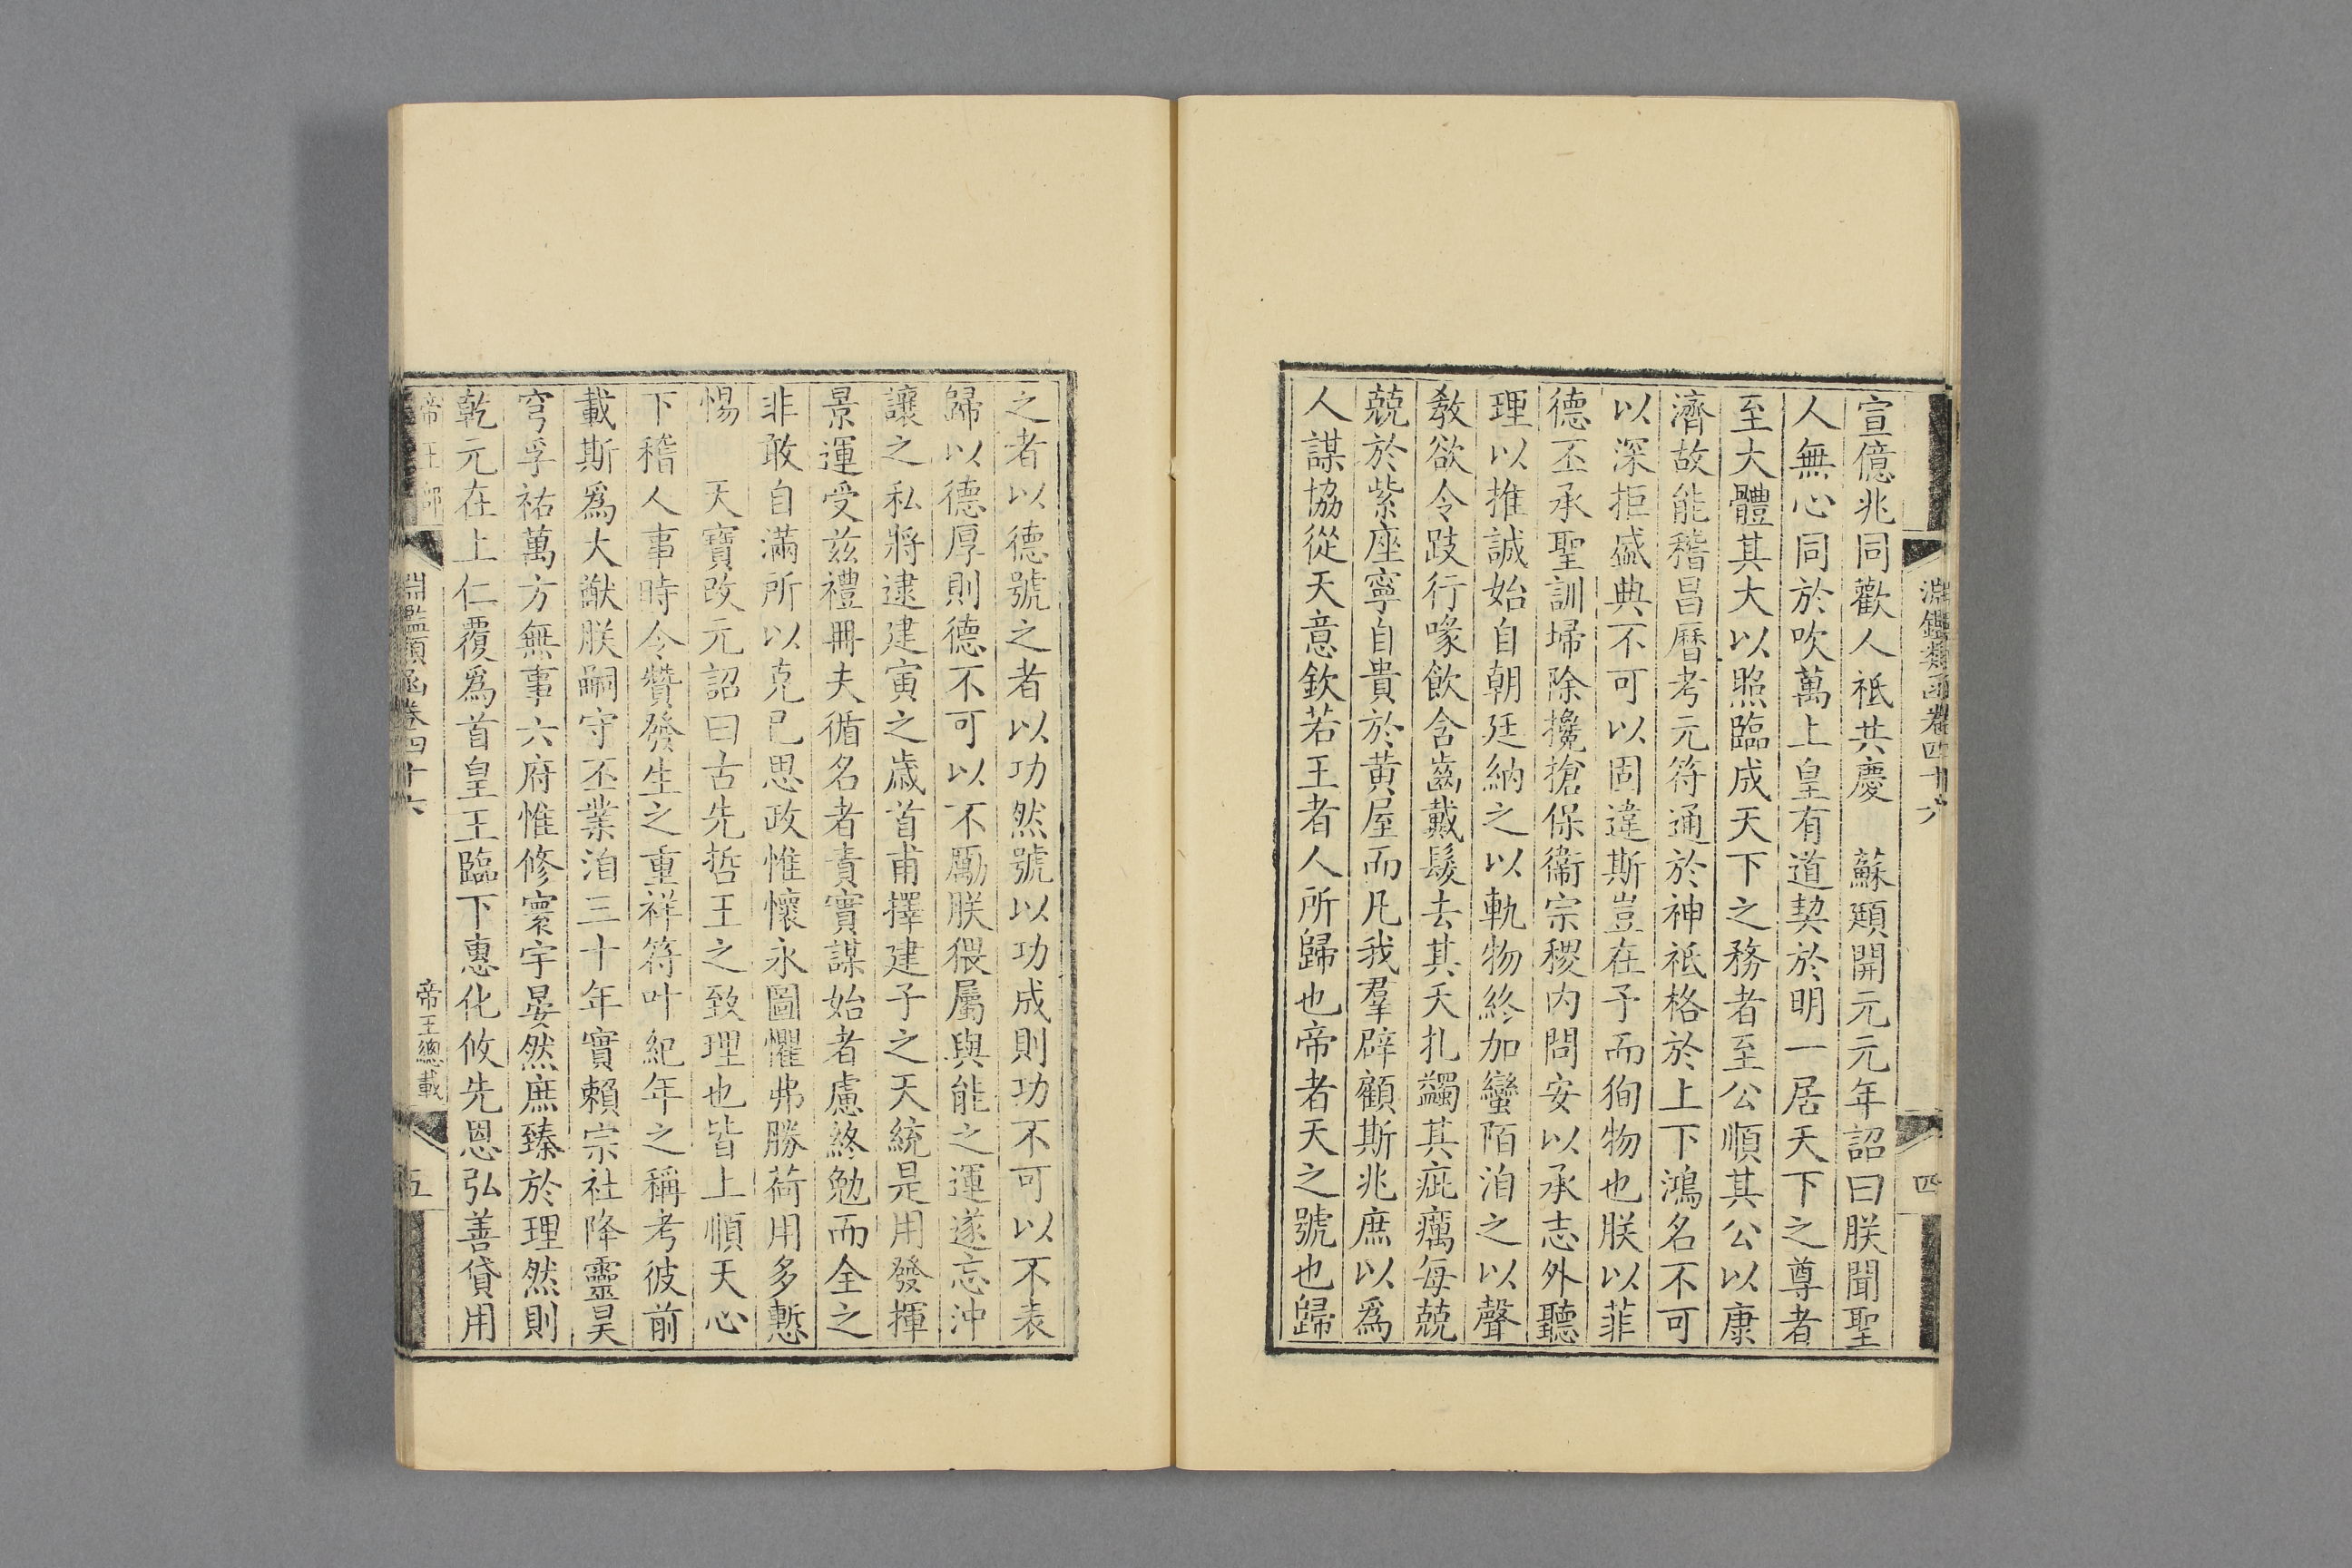 淵鑑類函卷四十六
四
宣億兆同歡人祇共慶　蘇頲開元元年詔曰朕聞聖
人無心同於吹萬上皇有道契於明一居天下之尊者
至大體其大以照臨成天下之務者至公順其公以康
濟故能稽昌曆考元符通於神祇格於上下鴻名不可
以深拒盛典不可以固違斯豈在予而徇物也朕以菲
德丕承聖訓埽除攙搶保衞宗稷内問安以承志外聽
理以推誠始自朝廷納之以軌物終加蠻陌洎之以聲
敎欲令跂行喙飲含齒戴髮去其夭扎蠲其疵癘每兢
兢於紫座寧自貴於黄屋而凡我羣辟顧斯兆庶以爲
人謀協從天意欽若王者人所歸也帝者天之號也歸
之者以德號之者以功然號以功成則功不可以不表
歸以德厚則德不可以不勵朕猥屬與能之運遂忘沖
讓之私將逮建寅之歳首甫擇建子之天統是用發揮
景運受兹禮冊夫循名者責實謀始者慮終勉而全之
非敢自滿所以克己思政惟懷永圖懼弗勝荷用多慙
惕　天寶改元詔曰古先哲王之致理也皆上順天心
下稽人事時令贊發生之重祥符叶紀年之稱考彼前
載斯爲大猷朕嗣守丕業洎三十年實賴宗社降靈昊
穹孚祐萬方無事六府惟修寰宇晏然庶臻於理然則
乾元在上仁覆爲首皇王臨下惠化攸先恩弘善貸用
帝王部
淵鑑類函卷四十六
帝王總載
五